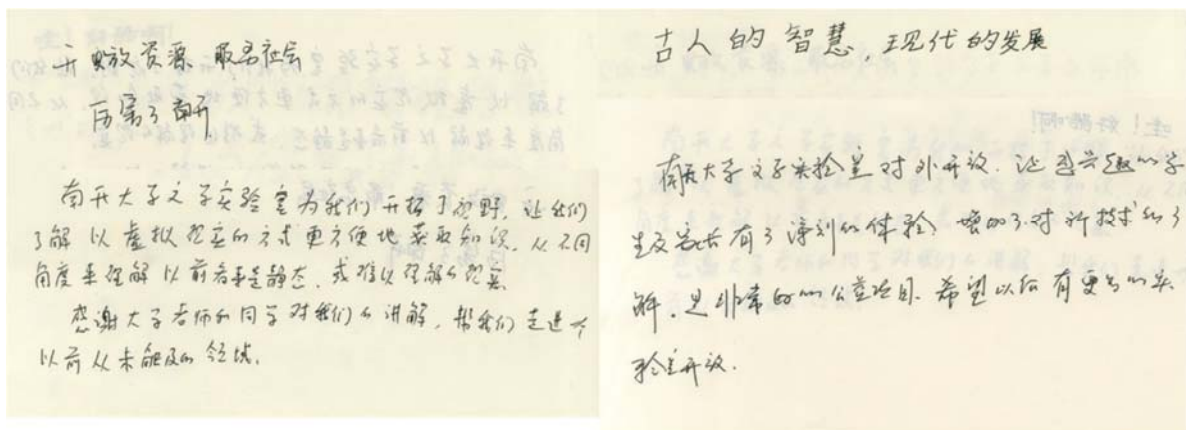 开放资源 服务社会
厉害了南开
南开大学文学实验室为我们开拓了视野,让我们
了解以虚拟现实的方式更方便地获取知识,从不同
角度来理解以前看来是静态、或难以理解的现实
感谢大学老师和同学对我们的讲解,帮我们走进一个
以前从未触及的领域.
古人的智慧,现代的发展
哇!好酷啊!
南开大学文学实验室对外开放,让感兴趣的学
生及家长有了深刻的体验,增加了对新技术的了
解.是非常好的公益项目.希望以后有更多的实
验室开放.